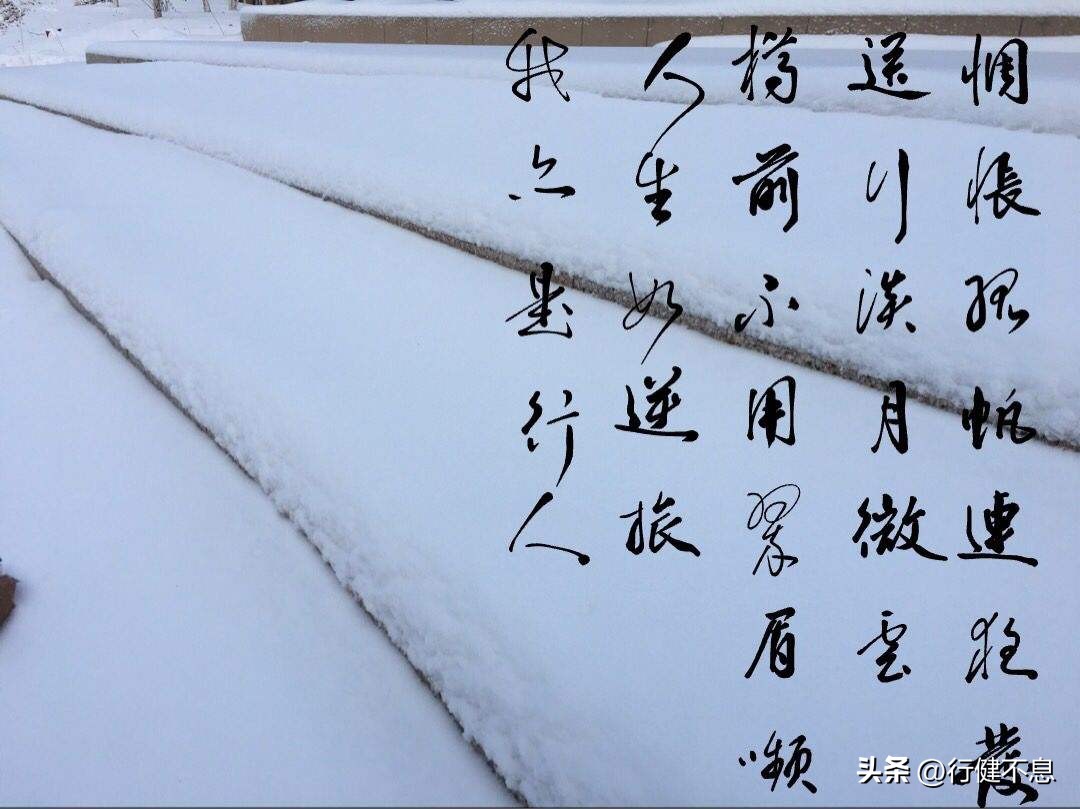 惆悵孤帆連夜發
送行淡月微雲
樽前不用翠眉嚬
人生如逆旅
我亦是行人
头条 @行健不息